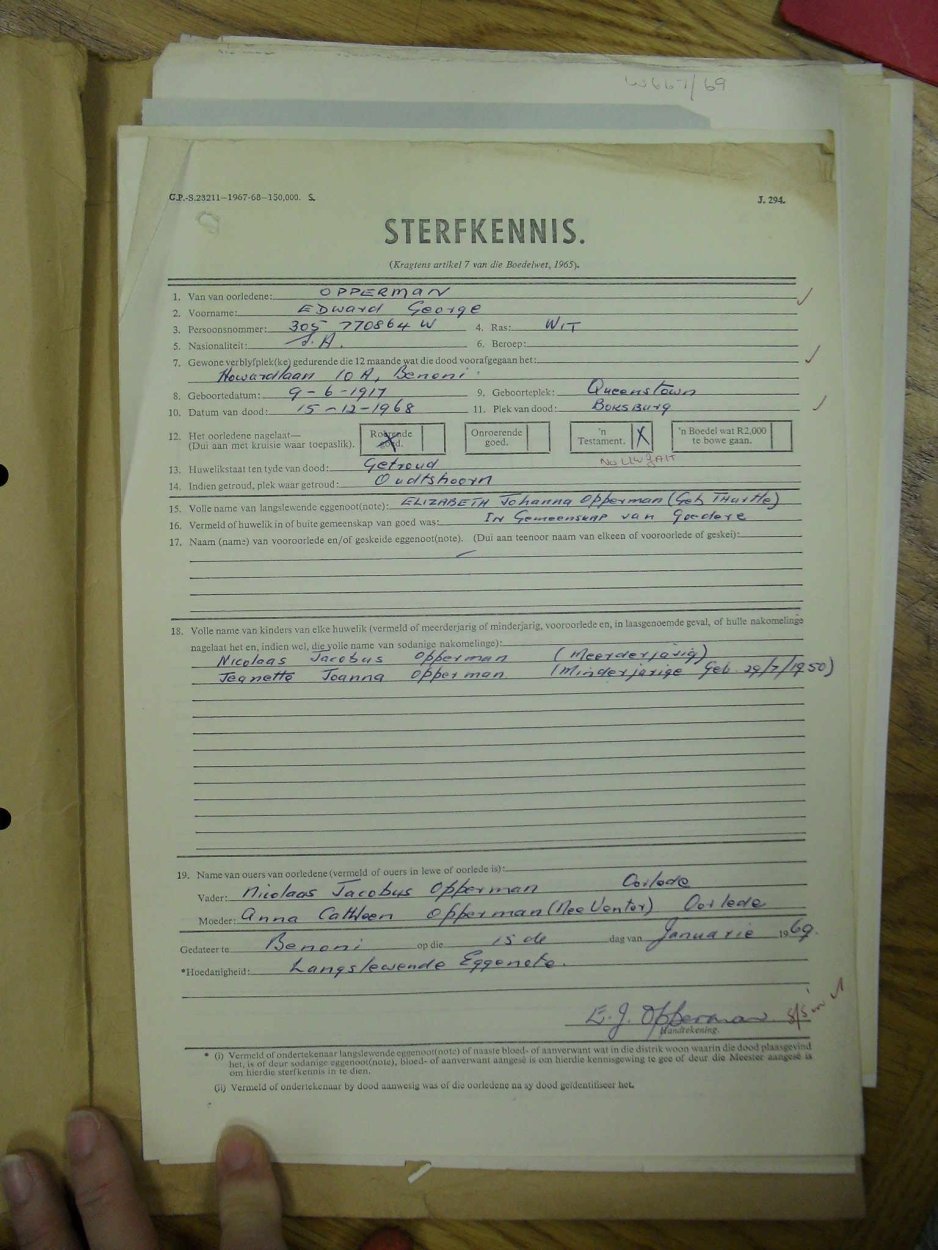 W667/69
G.P.-S.23211—1967-68—150,000. S.
J. 294.
STERFKENNIS.
(Kragtens artikel 7 van die Boedelwet, 1965).
1. Van van oorledene: OPPERMAN
2. Voorname: EDward George
3. Persoonsnommer: 305 770864 W 4. Ras: WIT
5. Nasionaliteit: S.A. 6. Beroep:
7. Gewone verblyfplek(ke) gedurende die 12 maande wat die dood voorafgegaan het:
Howardlaan 10A, Benoni.
8. Geboortedatum: 9-6-1917 9. Geboorteplek: Queenstown
10. Datum van dood: 15-12-1968 11. Plek van dood: Boksburg
12. Het oorledene nagelaat—
(Dui aan met kruisie waar toepaslik).
Roerende goed. X
Onroerende goed.
'n Testament. X
'n Boedel wat R2,000 te bowe gaan.
13. Huwelikstaat ten tyde van dood: Getroud
14. Indien getroud, plek waar getroud: Oudtshoorn
15. Volle name van langslewende eggenoot(note): ELIZABETH Johanna Opperman (Geb. Thurtle)
16. Vermeld of huwelik in of buite gemeenskap van goed was: In Gemeenskap van Goedere
17. Naam (name) van vooroorlede en/of geskeide eggenoot(note). (Dui aan teenoor naam van elkeen of vooroorlede of geskei):
18. Volle name van kinders van elke huwelik (vermeld of meerderjarig of minderjarig, vooroorlede en, in laasgenoemde geval, of hulle nakomelinge
nagelaat het en, indien wel, die volle name van sodanige nakomelinge):
Nicolaas Jacobus Opperman (Meerderjarig)
Jeanette Joanna Opperman (Minderjarige Geb. 29/7/1950)
19. Name van ouers van oorledene (vermeld of ouers in lewe of oorlede is):
Vader: Nicolaas Jacobus Opperman Oorlede
Moeder: Anna Cathleen Opperman (Nee Venter) Oorlede
Gedateer te Benoni op die 15 de dag van Januarie 1969.
*Hoedanigheid: Langslewende Eggenote.
E. J. Opperman
Handtekening.
* (i) Vermeld of ondertekenaar langslewende eggenoot(note) of naaste bloed- of aanverwant wat in die distrik woon waarin die dood plaasgevind
het, is of deur sodanige eggenoot(note), bloed- of aanverwant aangesê is om hierdie kennisgewing te gee of deur die Meester aangesê is
om hierdie sterfkennis in te dien.
(ii) Vermeld of ondertekenaar by dood aanwesig was of die oorledene na sy dood geïdentifiseer het.